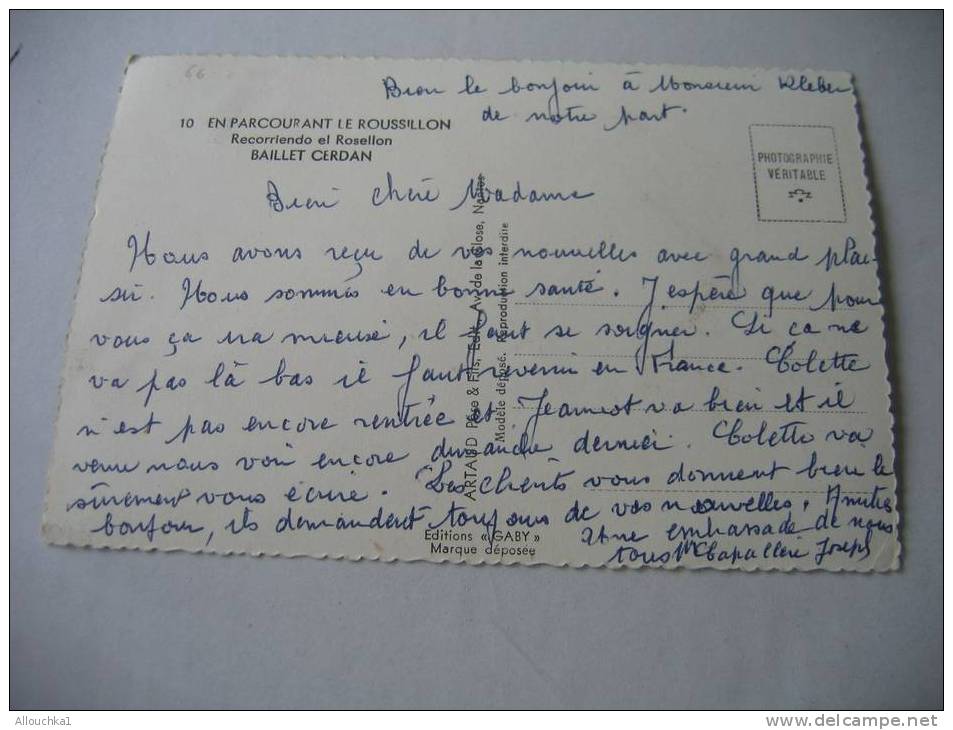 66
Bien le bonjour à Monsieur Kleber
de notre part.
10 EN PARCOURANT LE ROUSSILLON
Recorriendo el Rosellon
BAILLET CERDAN
PHOTOGRAPHIE
VÉRITABLE
Bien chère Madame
Nous avons reçu de vos nouvelles avec grand plai-
sir. Nous sommes en bonne santé. J'espère que pour
vous ça ira mieuse, il faut se soigner. Si ça ne
va pas là bas il faut revenir en France. Colette
n'est pas encore rentrée et Jeannot va bien et il
venu nous voir encore dimanche dernier. Colette va
sûrement vous écrire. Les clients vous donnent bien le
bonjour, ils demandent toujours de vos nouvelles. Amitiés
et une embrassade de nous
tous Joseph
ARTAUD Père & Fils, Edit., Av. de la Close, Nantes
Modèle déposé. Reproduction interdite
Editions « GABY »
Marque déposée
Allouchka1
http://www.delcampe.net